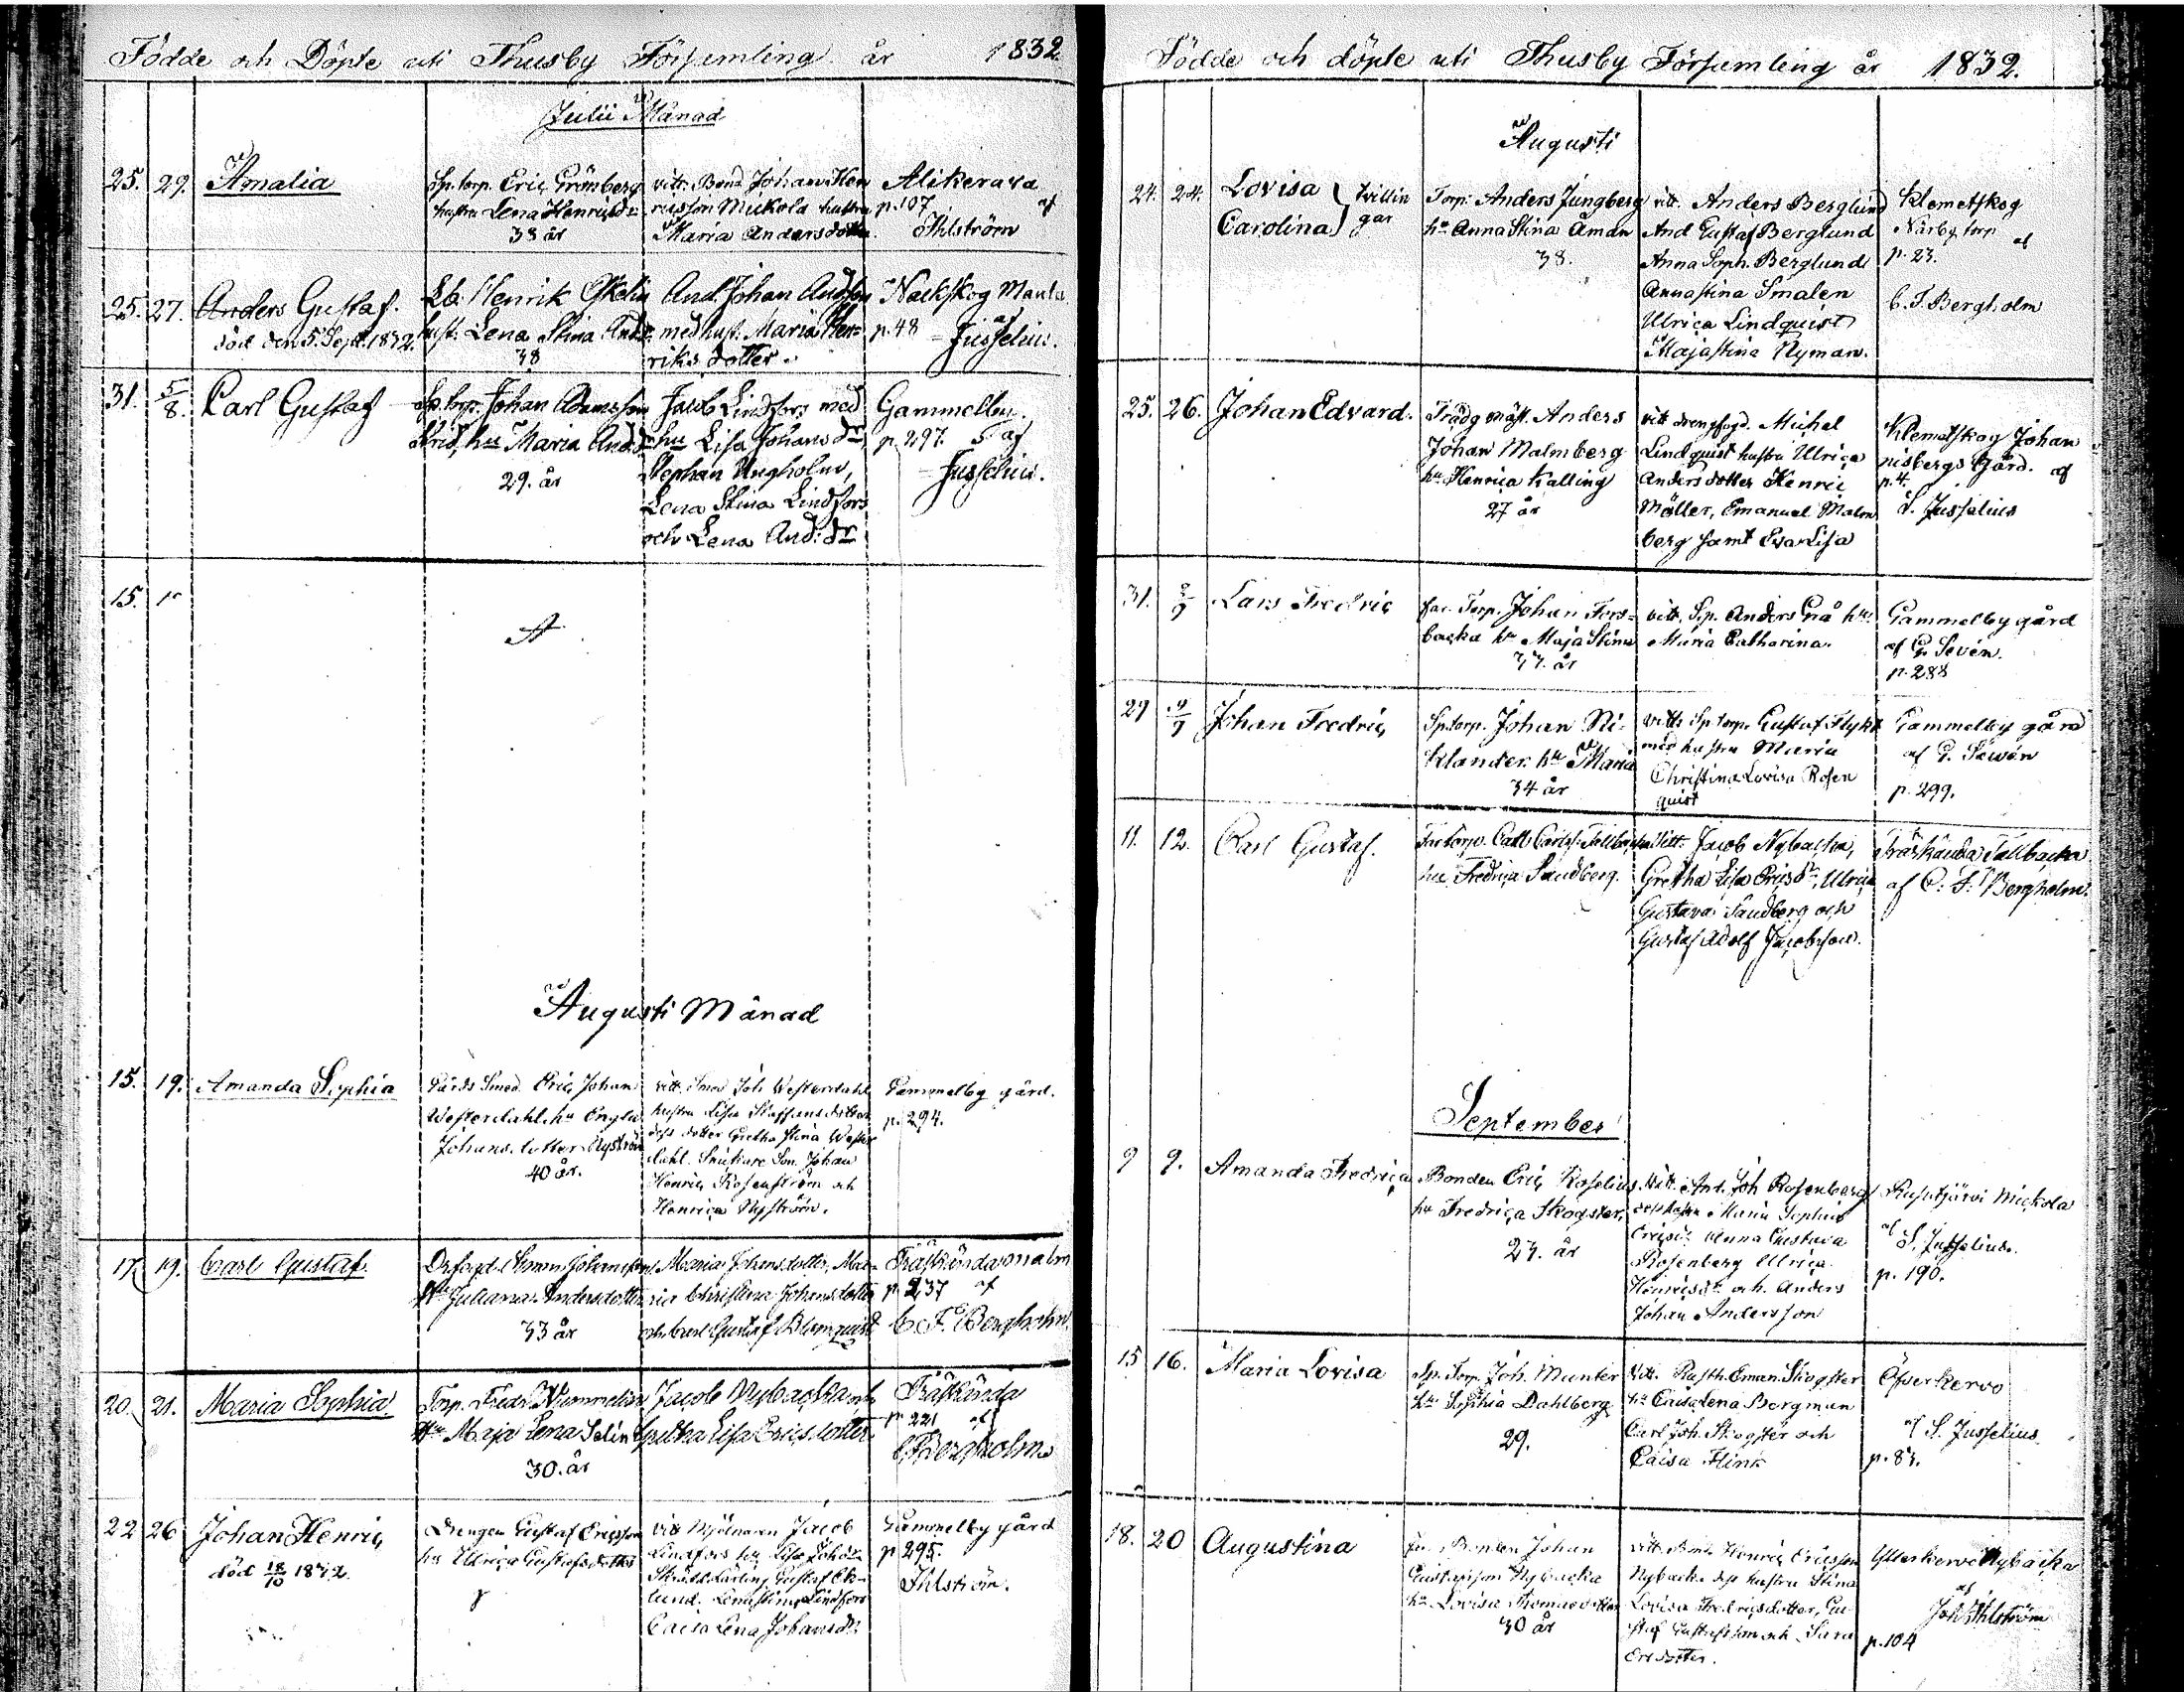 Födde och Döpte uti Thusby Församling år 1832
Julii Månad
25. 29. Amalia
Sp. torp. Eric Grönberg
hustru Lena Henricsdr
38 år
vittn. Bond Johan Hen
ricsson Mickola hustru
Maria Andersdotter.
Alikerava
p. 107 af
Ihlström
25. 27. Anders Gustaf.
död den 5. Sept. 1832.
Henrik
hust. Lena Stina And
38
And. Johan Andsson
med hust. Maria Hen=
riks dotter.
Nackskog
p. 48 = af
Jusselius.
31. 5/8. Carl Gustaf
Sp. torp. Johan Adamsson
hu Maria Andr
29. år
Jacob Lindfors med
hu Lisa Johans dr,
Stephan Ungholm,
Lena Stina Lindfors
och Lena And: dr
Gammelby.
p. 297. af
= Jusselius.
15. 1
A
Augusti Månad
15. 19. Amanda Sophia
Gårds Smed Eric Johan
Westerdahl. hu
Johans dotter Nyström
40 år.
vitt. Smed Joh Westerdahl
hustru Lisa Staffansdotter
dess dotter Gretha Stina Wester
dahl. Son Johan
Henric Rosenström och
Henrica Nyström.
Gammelby gård.
p. 294.
17. 19. Carl Gustaf.
Simon Johansson
hu Juliana Andersdotter
33 år
Maria Johansdotter, Ma=
ria Christina Johansdotter
och Carl Gustaf Blomquist
Träskändamalm
p 237 af
C. F. Bergholm.
20. 21. Maria Sophia
Torp. Fredr. Nummelin
hu Maja Lena Selin
30. år
Jacob Nybacka och
Gretha Lisa Ericsdotter.
Träskända
p 221 af
C F Bergholm
22 26 Johan Henric
död 18/10 1832
Drengen Gustaf Ericsson
hu Ulrica Gustafsdotter
vitt Mjölnaren Jacob
Lindfors hu Lisa
Gustaf Ek=
lund. Lindfors
Caisa Lena Johansdr
Gammelby gård
p 295.
Ihlström.
Födde och döpte uti Thusby Församling år 1832.
Augusti
24. 24. Lovisa
Carolina
tvillin
gar
Torp. Anders Jungberg
hu Anna Stina Åman
38.
vitt. Anders Berglund
And Gustaf Berglund
Anna Soph. Berglund
Annastina Smalen
Ulrica Lindquist
Majastina Nyman.
Klemetskog
Närby torp
p. 23. af
C. F. Bergholm
25. 26. Johan Edvard.
Trädg mäst. Anders
Johan Malmberg
hu Henrica Kalling
27 år
vitt drengfogd. Michel
Lindquist hustru Ulrica
Anders dotter Henric
Möller, Emanuel Malm
berg samt Eva Lisa
Klemetskog Johan
nisbergs Gård. af
p. 4.
S. Jusselius
31. 2/9 Lars Fredric
Torp. Johan Fors=
backa hu Maja Stina
37. år
vitt. Sp. Anders Grå hu
Maria Catharina.
Gammelby gård
af G. Sevén.
p. 288
29 9/9 Johan Fredric
Sp. torp. Johan Ni=
klander. hu Maria
34 år
vitt. Sp torp. Gustaf Flykt
med hustru Maria
Christina Lovisa Rosen
quist
Gammelby gård
af G. Sewén
p. 299.
11. 12. Carl Gustaf.
Carl Carlss. Tallbacka
hu Fredrica Sandberg.
Vitt. Jacob Nybacka,
Gretha Lisa Ericsdr, Ulrica
Gustava Sandberg och
Gustaf Adolf Jacobsson.
Träskända Tallbacka
af C. F. Bergholm.
September
9 9. Amanda Fredrica
Bonden Eric Roselius
hu Fredrica Skogster.
27. år
Vitt. And. Joh Rosenberg
dess hustru Maria Sophia
Ericsdr Anna Gustava
Rosenberg Ulrica
Henricsdr och Anders
Johan Andersson
Rusutjärvi Mickola
af
S. Jusselius.
p. 190.
15 16. Maria Lovisa
Sp. Torp. Joh. Munter
hu Sophia Dahlberg
29.
Vitt. Rusth. Eman. Skogster
hu Caisa Lena Bergman
Carl Joh. Skogster och
Caisa Flink
Öfverkervo
af S. Jusselius.
p. 83.
18. 20 Augustina
Bonden Johan
Gustafsson Nybacka
hu Lovisa Thomasdotter
30 år
vitt. Bond. Henric Ericsson
Nybacka dess hustru Stina
Lovisa Fredricsdotter, Gu
staf Gustafsson och Sara
Ersdotter.
Ytterkervo Nybacka
af
Joh Ihlström
p. 104